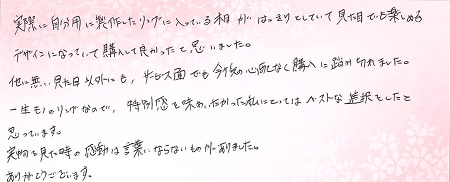 実際に自分用に製作したリングに入っている相がはっきりとしていて見た目でも楽しめる
デザインになっていて購入して良かったと思いました。
他に無い見た目以外にも、サービス面でも今後の心配なく購入に踏み切れました。
一生モノのリングなので、特別感を味わいたかった私にとってはベストな選択をしたと
思っています。
実物を見た時の感動は言葉にならないものがありました。
ありがとうございます。